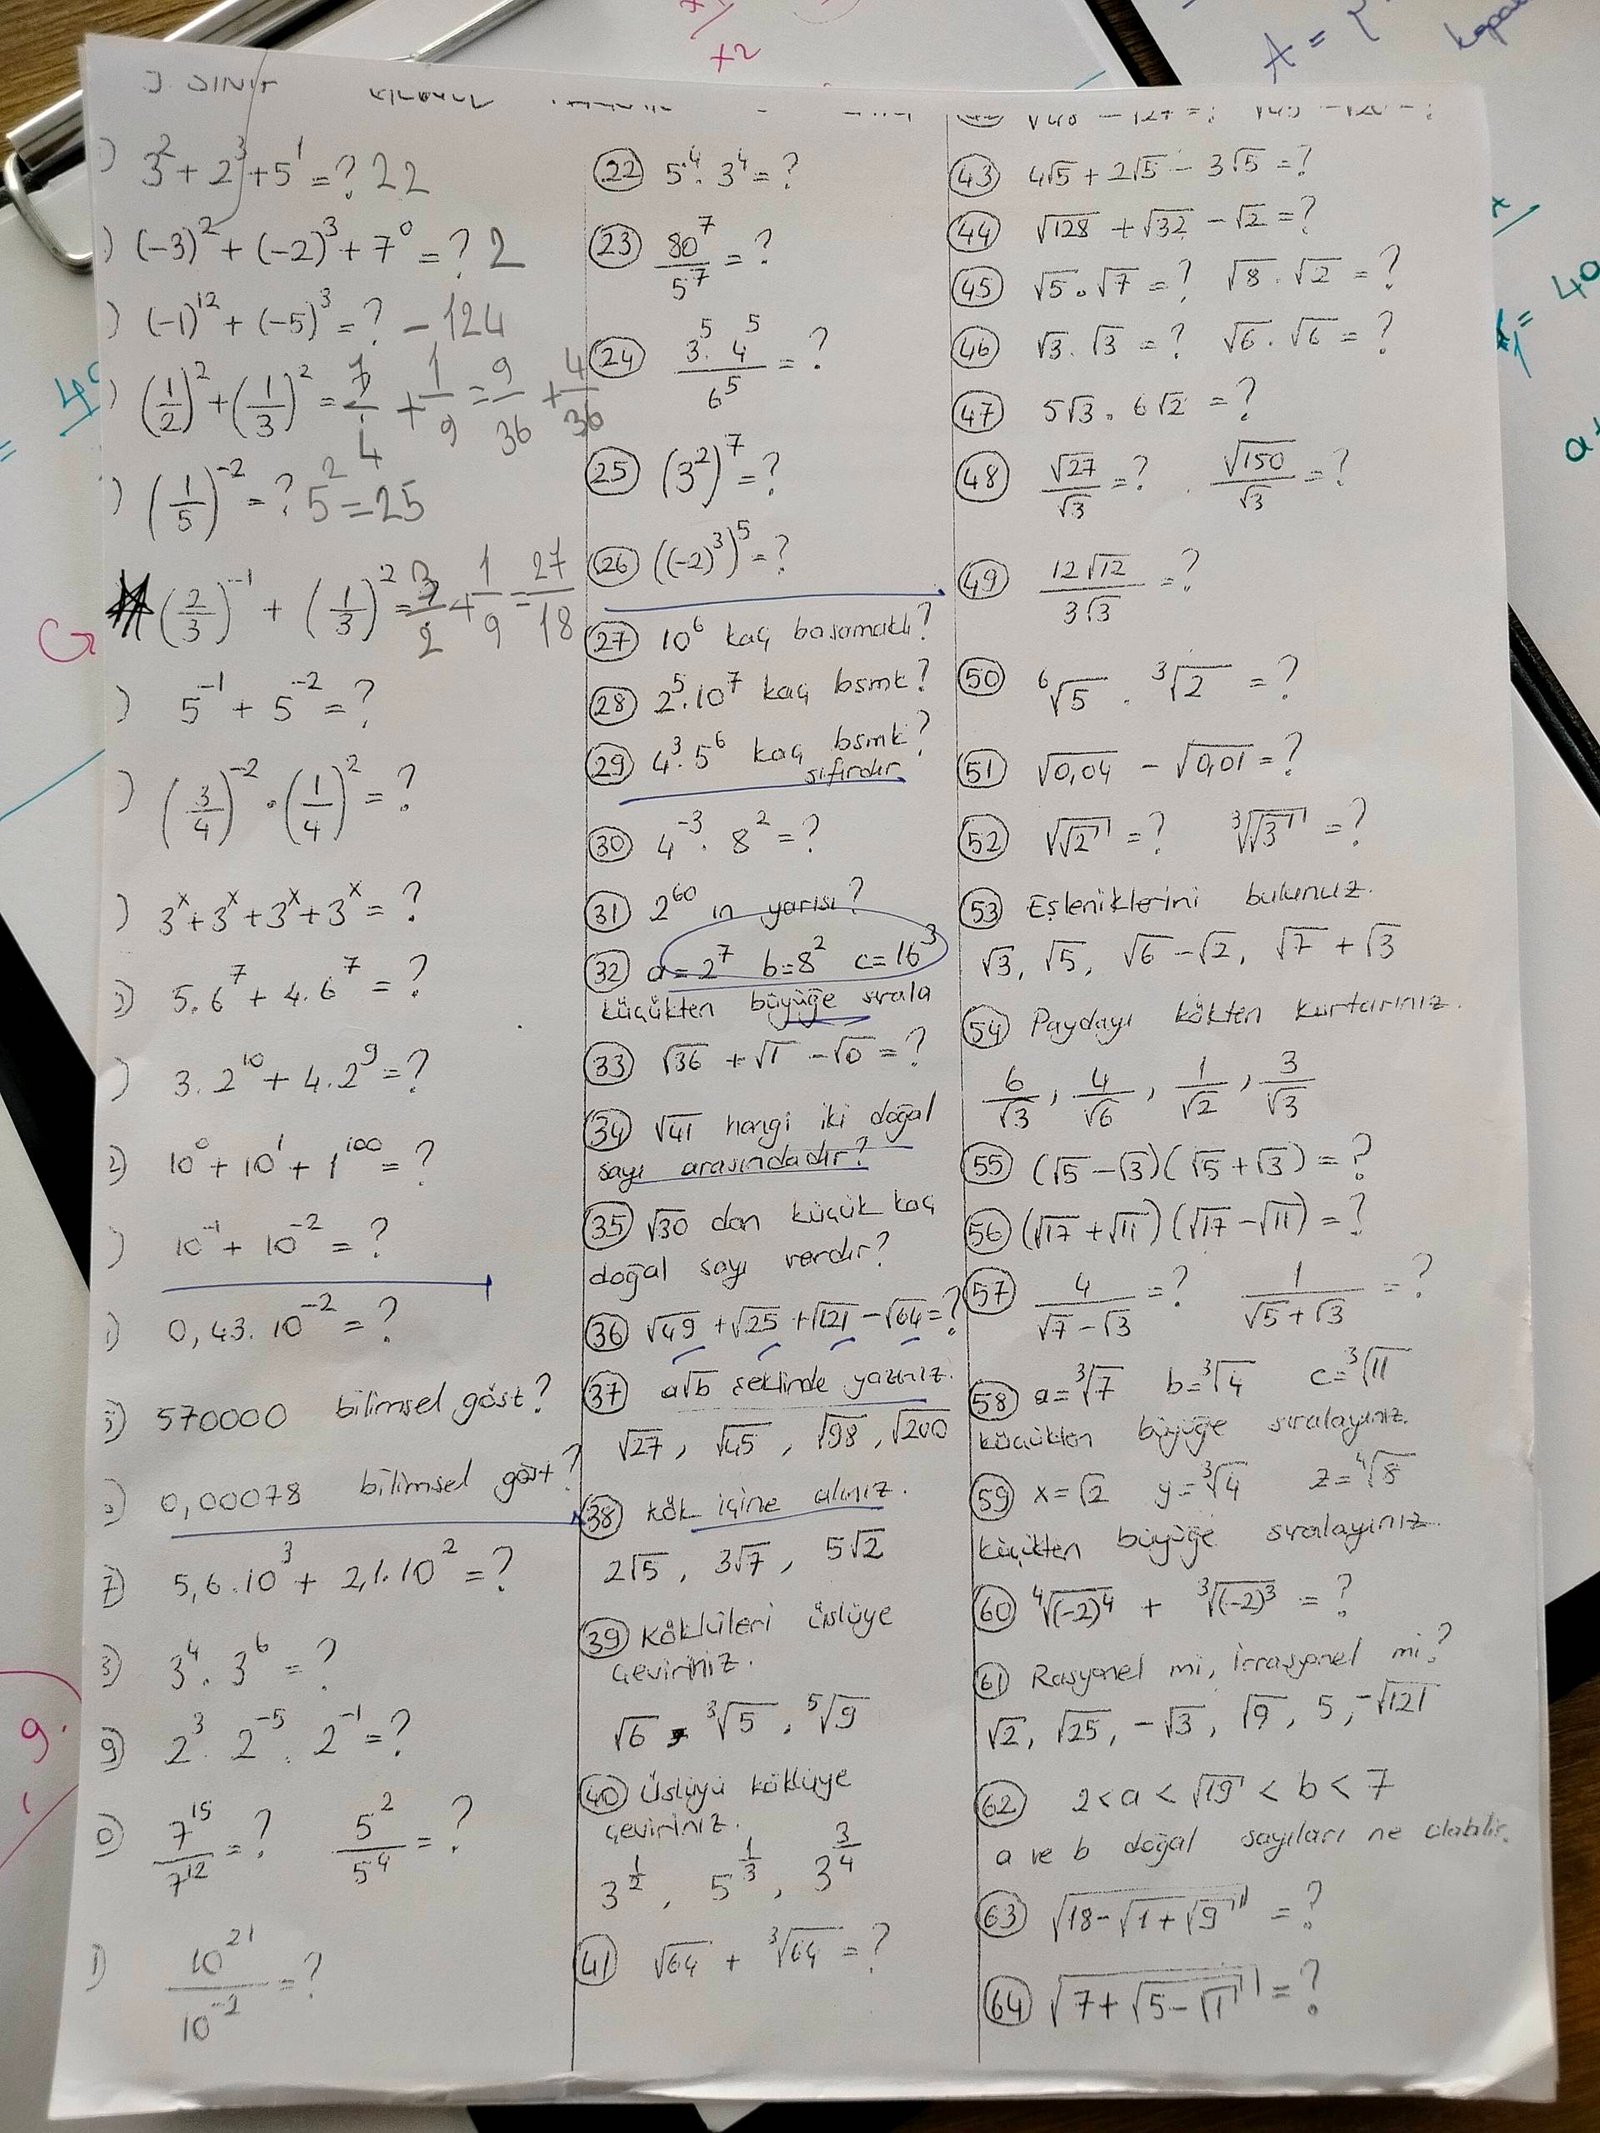 9. SINIF
3² + 2³ + 5¹ = ? 22
(-3)² + (-2)³ + 7⁰ = ? 2
(-1)¹² + (-5)³ = ? - 124
(1/2)² + (1/3)² = 1/4 + 1/9 = 9/36 + 4/36
(1/5)⁻² = ? 5² = 25
(2/3)⁻¹ + (1/3)² = 3/2 + 1/9 = 27/18
5⁻¹ + 5⁻² = ?
(3/4)⁻² · (1/4)² = ?
3ˣ + 3ˣ + 3ˣ + 3ˣ = ?
5.6⁷ + 4.6⁷ = ?
3.2¹⁰ + 4.2⁹ = ?
2) 10⁰ + 10¹ + 1¹⁰⁰ = ?
10⁻¹ + 10⁻² = ?
0,43.10⁻² = ?
570000 bilimsel göst?
0,00078 bilimsel göst?
7) 5,6.10³ + 2,1.10² = ?
3⁴ . 3⁶ = ?
9) 2³ . 2⁻⁵ . 2⁻¹ = ?
0) 7¹⁵/7¹² = ? 5²/5⁴ = ?
1) 10²¹/10⁻² = ?
22 5⁴ . 3⁴ = ?
23 80⁷/5⁷ = ?
24 3⁵ . 4⁵/6⁵ = ?
25 (3²)⁷ = ?
26 ((-2)³)⁵ = ?
27 10⁶ kaç basamaklı?
28 2⁵.10⁷ kaç bsmk?
29 4³.5⁶ kaç bsmk?
sıfırdır
30 4⁻³ . 8² = ?
31 2⁶⁰ ın yarısı?
32 a = 2⁷ b = 8² c = 16³
küçükten büyüğe sırala
33 √36 + √1 - √0 = ?
34 √41 hangi iki doğal
sayı arasındadır?
35 √30 dan küçük kaç
doğal sayı vardır?
36 √49 + √25 + √121 - √64 = ?
37 a√b şeklinde yazınız.
√27, √45, √98, √200
38 kök içine alınız.
2√5, 3√7, 5√2
39 Köklüleri üslüye
çeviriniz.
√6, ³√5, ⁵√9
40 Üslüyü köklüye
çeviriniz.
3^(1/2), 5^(1/3), 3^(3/4)
41 √64 + ³√64 = ?
43 4√5 + 2√5 - 3√5 = ?
44 √128 + √32 - √2 = ?
45 √5 . √7 = ? √8 . √2 = ?
46 √3 . √3 = ? √6 . √6 = ?
47 5√3 . 6√2 = ?
48 √27/√3 = ? √150/√3 = ?
49 12√12/3√3 = ?
50 ⁶√5 . ³√2 = ?
51 √0,04 - √0,01 = ?
52 √√2 = ? ³√√3 = ?
53 Eşleniklerini bulunuz.
√3, √5, √6 - √2, √7 + √3
54 Paydayı kökten kurtarınız.
6/√3, 4/√6, 1/√2, 3/√3
55 (√5 - √3)(√5 + √3) = ?
56 (√17 + √11)(√17 - √11) = ?
57 4/(√7 - √3) = ? 1/(√5 + √3) = ?
58 a = ³√7 b = ³√4 c = ³√11
küçükten büyüğe sıralayınız.
59 x = √2 y = ³√4 z = ⁴√8
küçükten büyüğe sıralayınız.
60 ⁴√(-2)⁴ + ³√(-2)³ = ?
61 Rasyonel mi, İrrasyonel mi?
√2, √25, -√3, √9, 5, -√121
62 2 < a < √19 < b < 7
a ve b doğal sayıları ne olabilir.
63 √(18 - √(1 + √9)) = ?
64 √(7 + √(5 - √1)) = ?
+2
A = {
40
9.